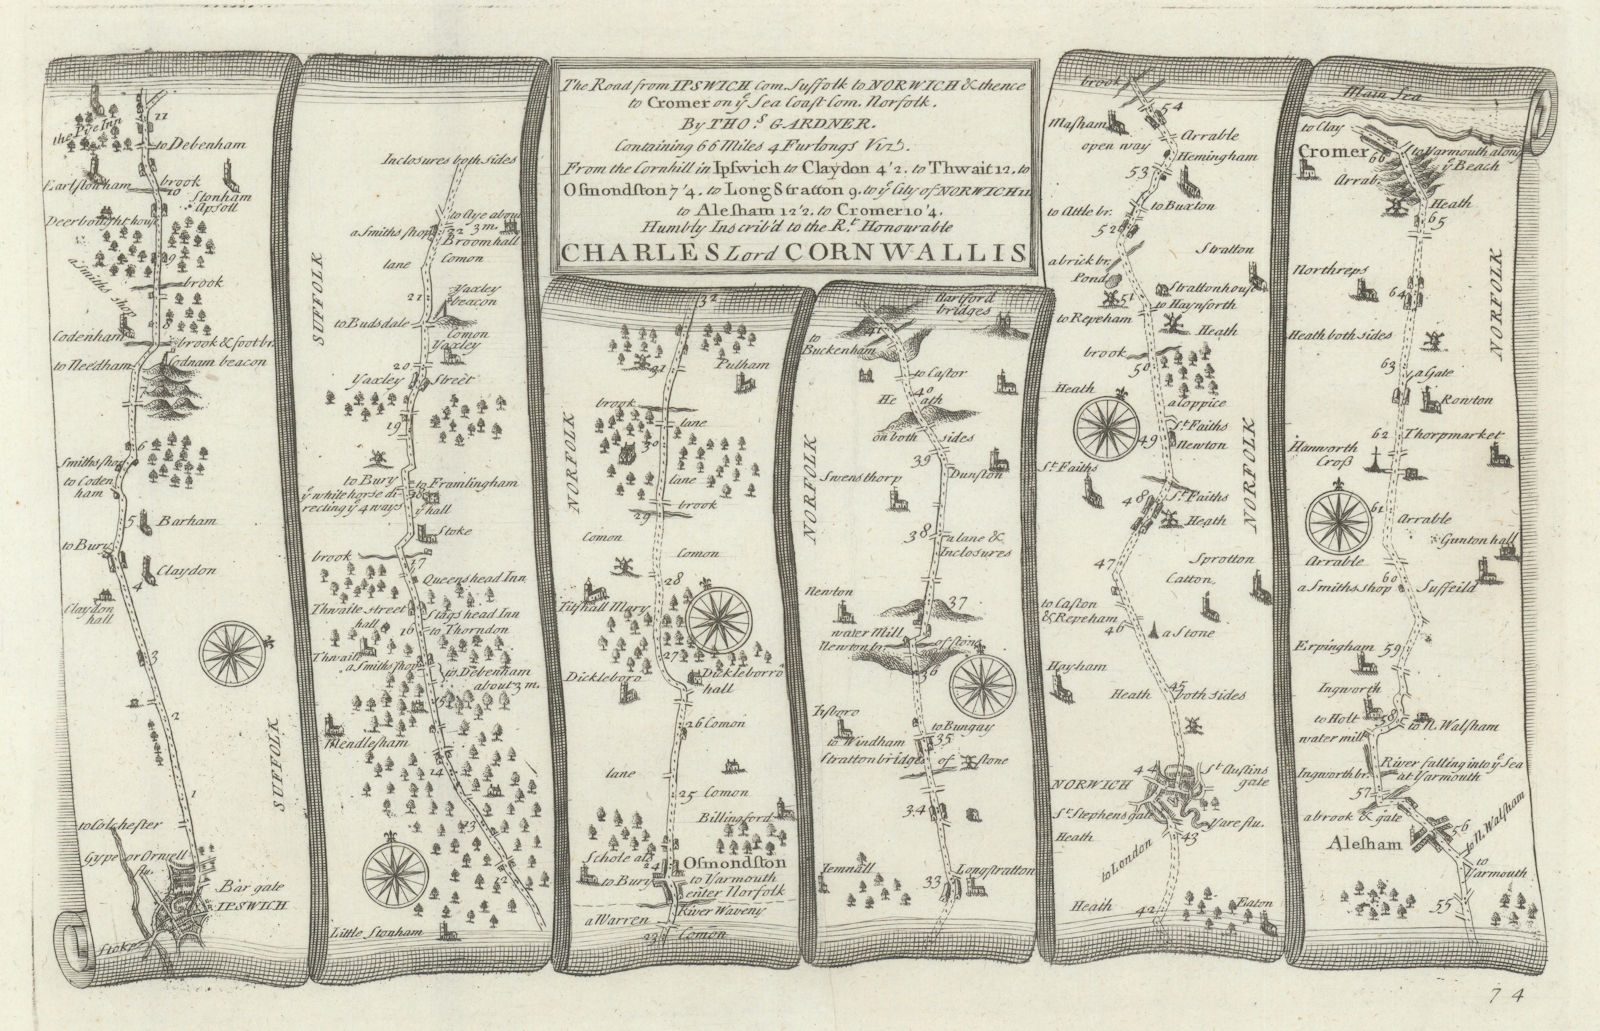 The Road from IPSWICH Com. Suffolk to NORWICH & thence
to Cromer on yͤ Sea Coast Com. Norfolk.
By THOˢ GARDNER.
Containing 66 Miles 4 Furlongs Vizᵗ.
From the Cornhill in Ipswich to Claydon 4'2. to Thwait 12. to
Osmondston 7'4. to Long Stratton 9. to yͤ City of NORWICH 11.
to Alesham 12'2. to Cromer 10'4.
Humbly Inscrib'd to the Rᵗ Honourable
CHARLES Lord CORNWALLIS
11
the Pye Inn
to Debenham
Earlstonham
brook
10
Stonham
Apsoll
Deerbought house
9
a Smiths shop
brook
8
Codenham
brook & foot br.
to Needham
Codnam beacon
7
6
Smiths shop
to Coden
ham
5
Barham
to Bury
Claydon
4
Claydon
hall
3
2
SUFFOLK
1
to Colchester
Gype or Orwell
flu.
Bar gate
IPSWICH
Stoke
Inclosures both sides
to Aye about
3 m.
a Smiths shop
22
Broomhall
Comon
SUFFOLK
lane
21
Yaxley
beacon
to Budsdale
Comon
Yaxley
20
Yaxley Street
19
to Bury
to Framlingham
yͤ white horse di
recting yͤ 4 ways
18
yͤ hall
Stoke
brook
17
Queens head Inn
Thwaite street
hall
Stags head Inn
16
to Thorndon
Thwaite
a Smiths shop
to Debenham
about 3 m.
15
Mendlesham
14
13
12
Little Stonham
32
31
Pulham
brook
lane
30
NORFOLK
lane
brook
29
Comon
Comon
28
Titshall Mary
27
Dickleboro
Dickleborro
hall
26 Comon
lane
25 Comon
Billingford
Schole als
Osmondston
24
to Bury
to Yarmouth
enter Norfolk
River Waveny
a Warren
23
Comon
Hartford
bridges
41
to
Buckenham
to Castor
40
Heath
on both sides
39
NORFOLK
Dunston
Swensthorp
38
a lane &
Inclosures
Newton
37
water Mill
Newton br. of stone
36
Tasboro
to Bungay
to Windham
35
Stratton bridges of stone
34
Temnall
Longstratton
33
brook
54
Masham
open way
Arrable
Hemingham
53
to Buxton
to Attle br.
52
Stratton
a brick br.
Pond
Stratton house
51
to Haynforth
to Repeham
Heath
brook
50
Heath
a loppice
Sᵗ Faiths
49
Newton
NORFOLK
Sᵗ Faiths
48
Sᵗ Faiths
Heath
47
Sprotton
Catton
to Caston
& Repeham
46
a Stone
Hayham
45
Heath both sides
44
Sᵗ Austins
gate
NORWICH
Sᵗ Stephens gate
Yare flu.
Heath
43
to London
Heath
42
Eaton
Main Sea
to Clay
Cromer
66
to Yarmouth along
yͤ Beach
Arrab.
Heath
65
Northreps
64
NORFOLK
Heath both sides
63
a Gate
Rowton
62
Thorpmarket
Hanworth
Cross
61
Arrable
Gunton hall
Arrable
60
a Smiths shop
Suffeild
Erpingham
59
Ingworth
to Holt
58
to N. Walsham
water mill
River falling into yͤ Sea
at Yarmouth
Ingworth br.
57
a brook & gate
56
to N. Walsham
Alesham
to
Yarmouth
55
74